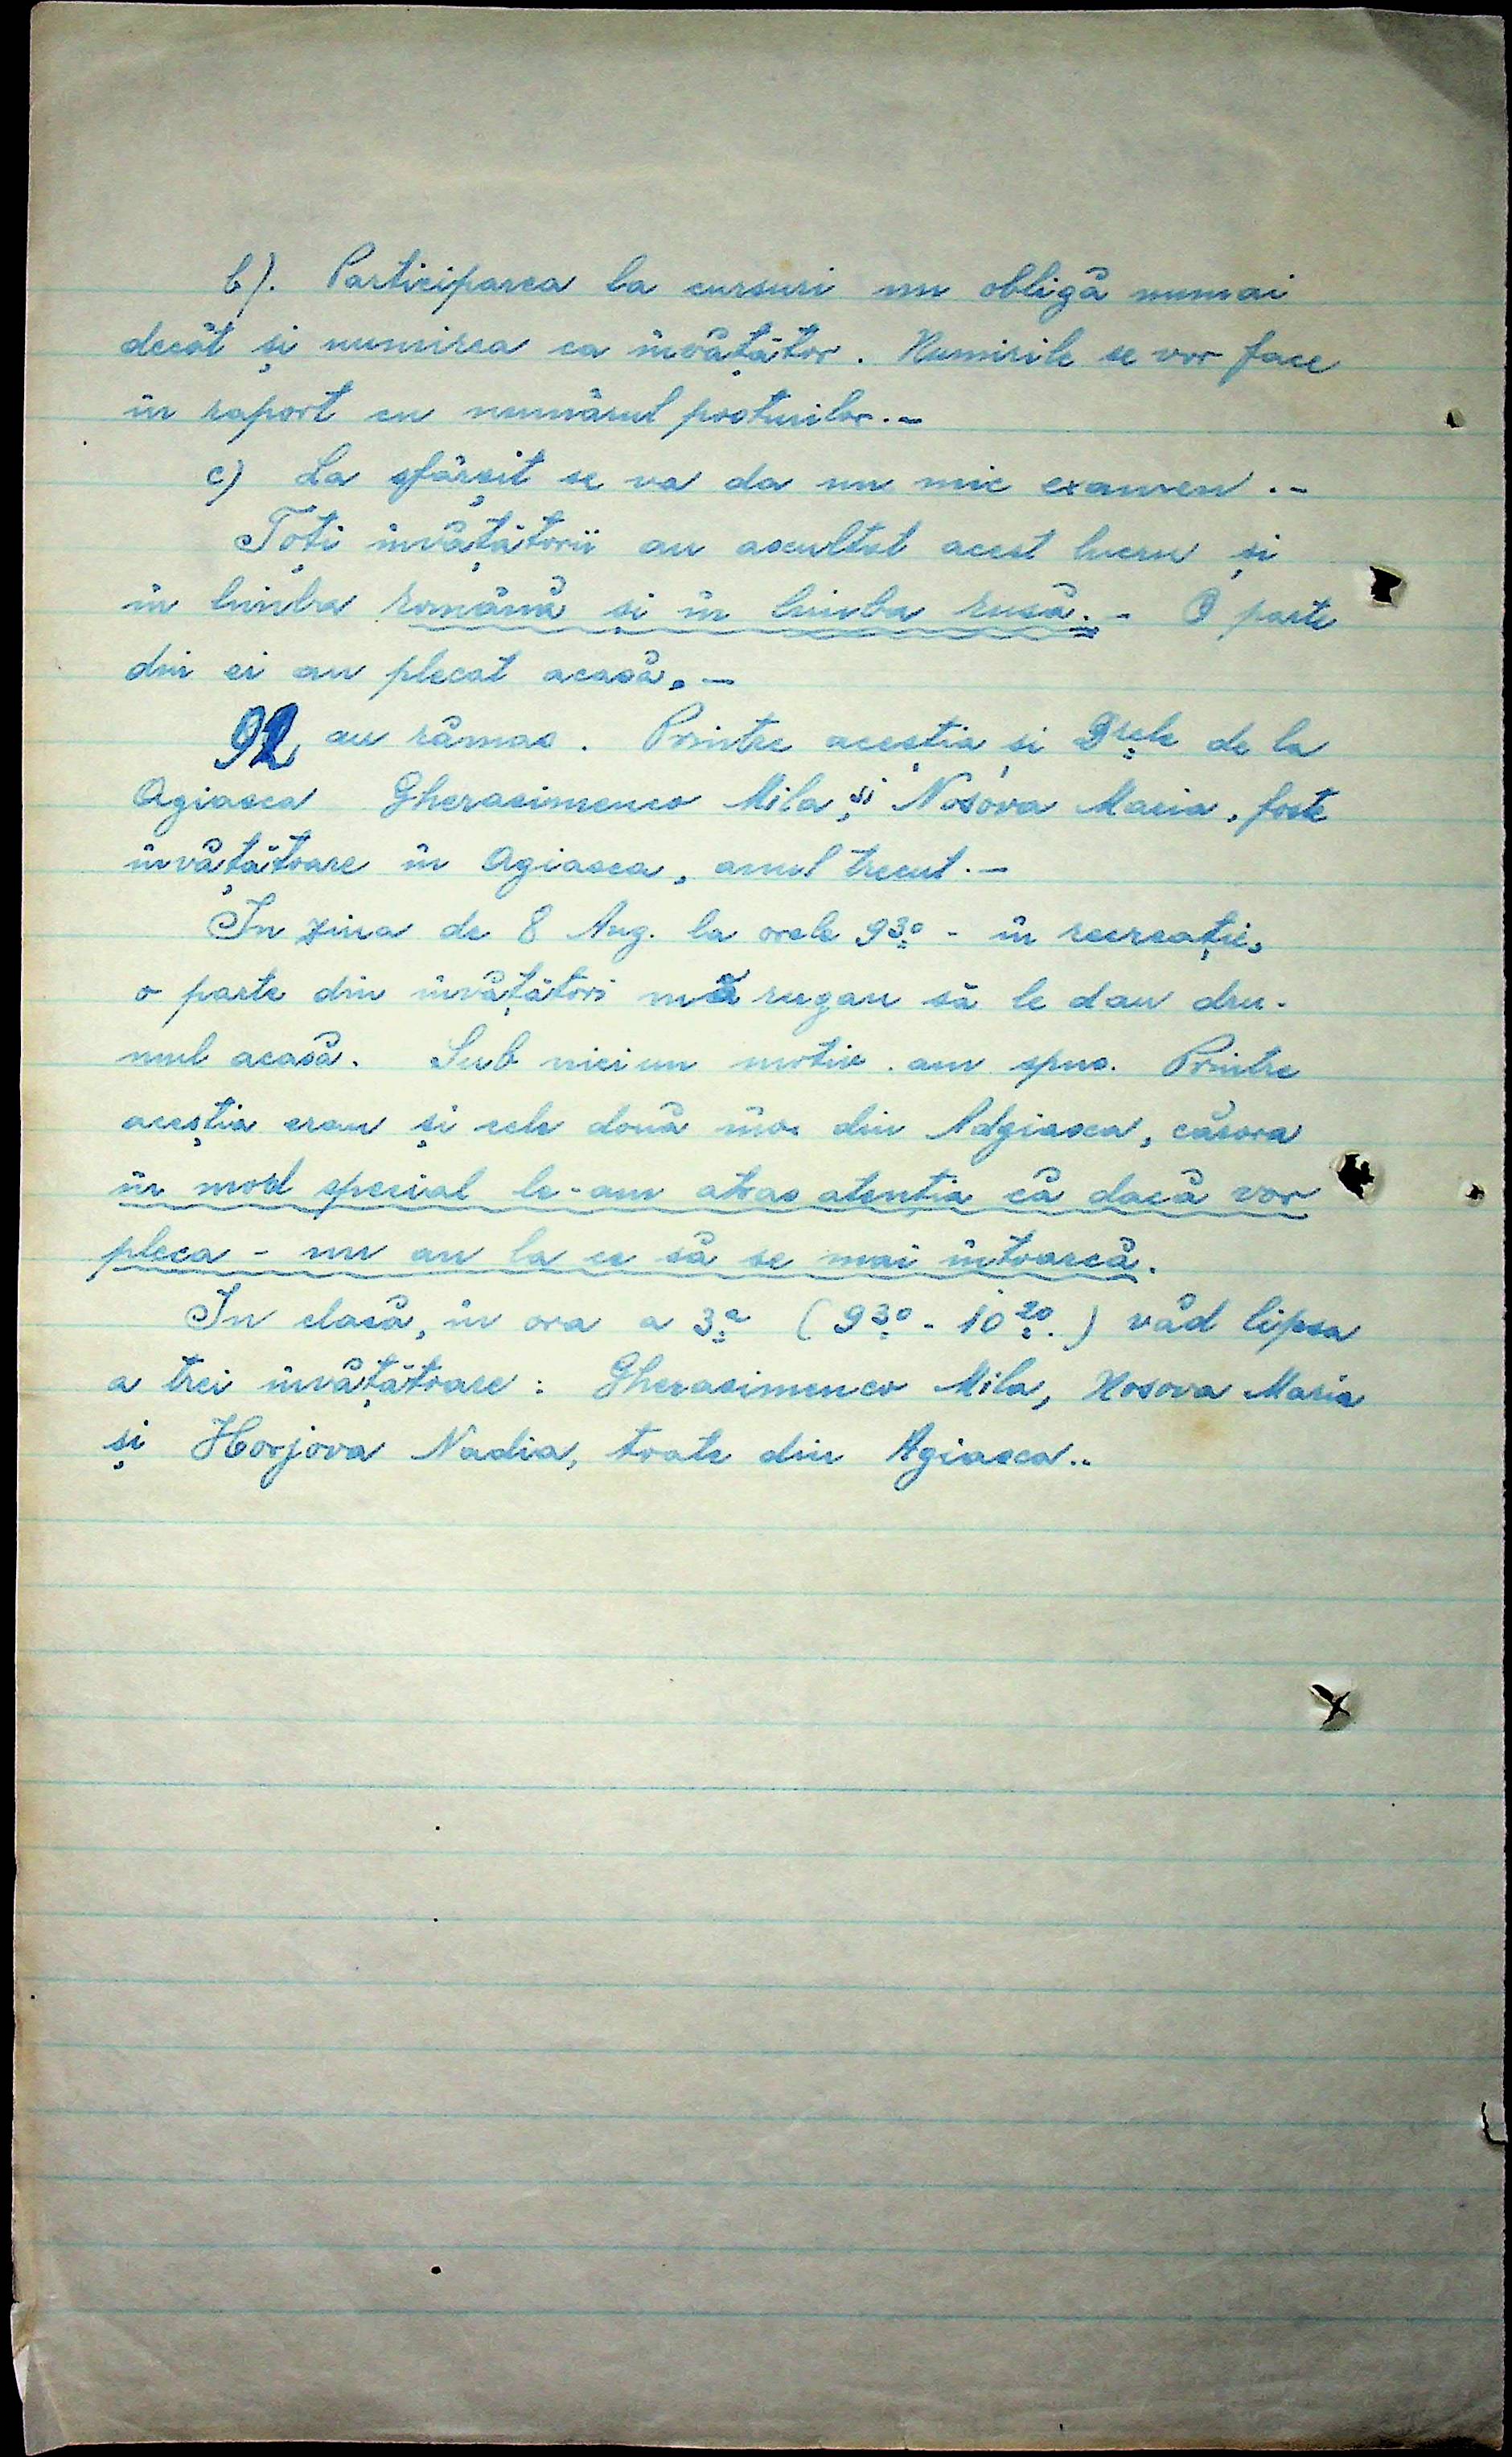 b). Participarea la cursuri nu obligă numai
decât și numirea ca învățător. Numirile se vor face
în raport cu numărul posturilor.-
c) La sfârșit se va da un mic examen.-
Toți învățătorii au ascultat acest lucru și
în limba română și în limba rusă.- O parte
din ei au plecat acasă.-
92 au rămas. Printre aceștia și Drele de la
Agiasca Gherasimenco Mila și Nosova Maria, foste
învățătoare în Agiasca, anul trecut.-
In ziua de 8 Aug. la orele 9³⁰ - în recreație,
o parte din învățători mă rugau să le dau dru-
mul acasă. Sub niciun motiv am spus. Printre
aceștia erau și cele două înv. din Adgiasca, cărora
în mod special le-am atras atenția că dacă vor
pleca - nu au la ce să se mai întoarcă.
In clasă, în ora a 3ª (9³⁰ - 10²⁰.) văd lipsa
a trei învățătoare: Gherasimenco Mila, Nosova Maria
și Horjova Nadia, toate din Agiasca..